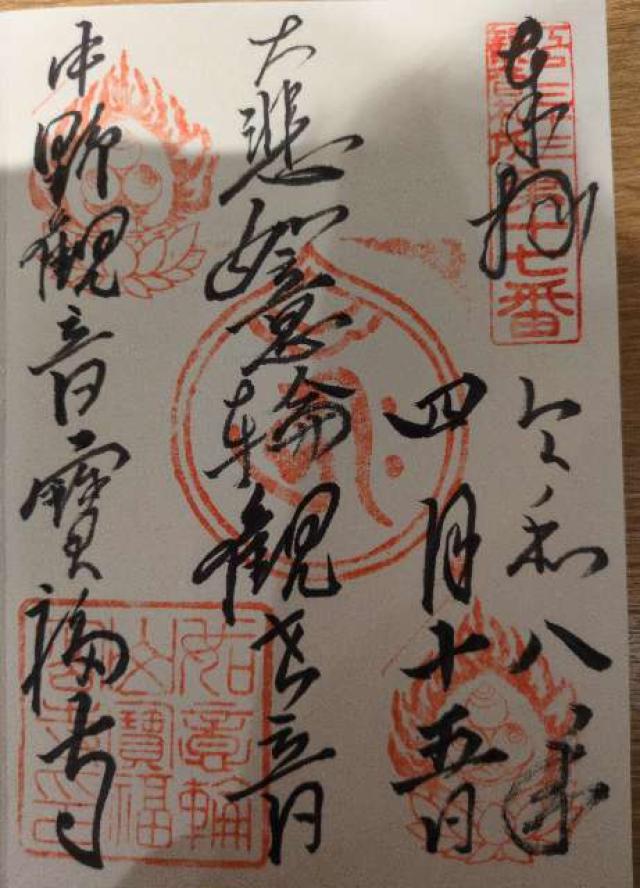 奉拝
十七番
令和八年
四月十五日
大悲如意輪観世音
中野観音寶福寺
如意輪
山寶福